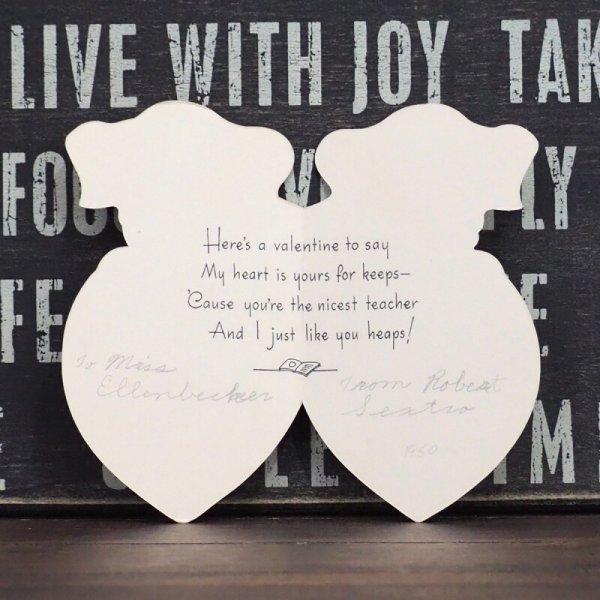 LIVE WITH JOY TAK
FO
LY
FE
Here's a valentine to say
My heart is yours for keeps—
'Cause you're the nicest teacher
And I just like you heaps!
To Miss
Ellenbecker
From Robert
Sextro
1950